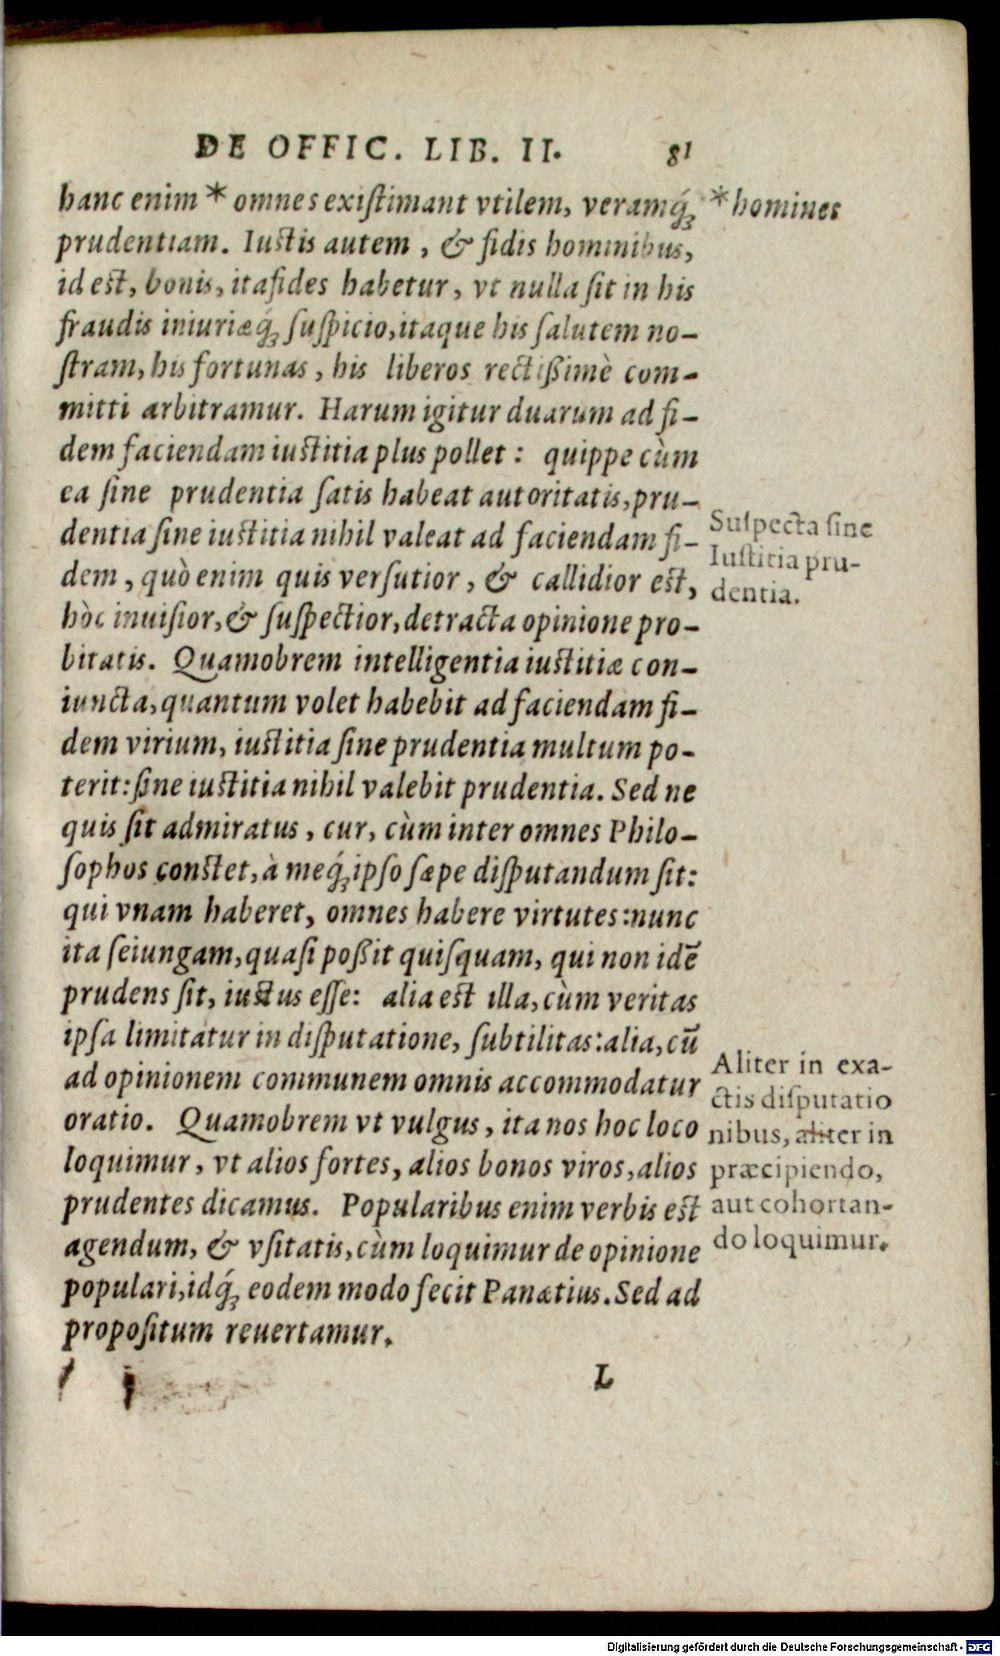 DE OFFIC. LIB. II. 81
hanc enim * omnes exiſtimant vtilem, veramq́;
*homines
prudentiam. Iuſtis autem, & fidis hominibus,
id eſt, bonis, ita fides habetur, vt nulla ſit in his
fraudis iniuriæq́; ſuſpicio, itaque his ſalutem no-
ſtram, his fortunas, his liberos rectißimè com-
mitti arbitramur. Harum igitur duarum ad fi-
dem faciendam iuſtitia plus pollet: quippe cùm
ea ſine prudentia ſatis habeat autoritatis, pru-
dentia ſine iuſtitia nihil valeat ad faciendam fi-
dem, quò enim quis verſutior, & callidior eſt,
hòc inuiſior, & ſuſpectior, detracta opinione pro-
bitatis. Quamobrem intelligentia iuſtitiæ con-
iuncta, quantum volet habebit ad faciendam fi-
dem virium, iuſtitia ſine prudentia multum po-
terit: ſine iuſtitia nihil valebit prudentia. Sed ne
quis ſit admiratus, cur, cùm inter omnes Philo-
ſophos conſtet, à meq́; ipſo ſæpe diſputandum ſit:
qui vnam haberet, omnes habere virtutes: nunc
ita ſeiungam, quaſi poßit quiſquam, qui non idē
prudens ſit, iuſtus eſſe: alia eſt illa, cùm veritas
ipſa limitatur in diſputatione, ſubtilitas: alia, cū
ad opinionem communem omnis accommodatur
oratio. Quamobrem vt vulgus, ita nos hoc loco
loquimur, vt alios fortes, alios bonos viros, alios
prudentes dicamus. Popularibus enim verbis eſt
agendum, & vſitatis, cùm loquimur de opinione
populari, idq́; eodem modo fecit Panætius. Sed ad
propoſitum reuertamur.
Suſpecta ſine
Iuſtitia pru-
dentia.
Aliter in exa-
ctis diſputatio
nibus, aliter in
præcipiendo,
aut cohortan-
do loquimur.
L
Digitalisierung gefördert durch die Deutsche Forschungsgemeinschaft - DFG